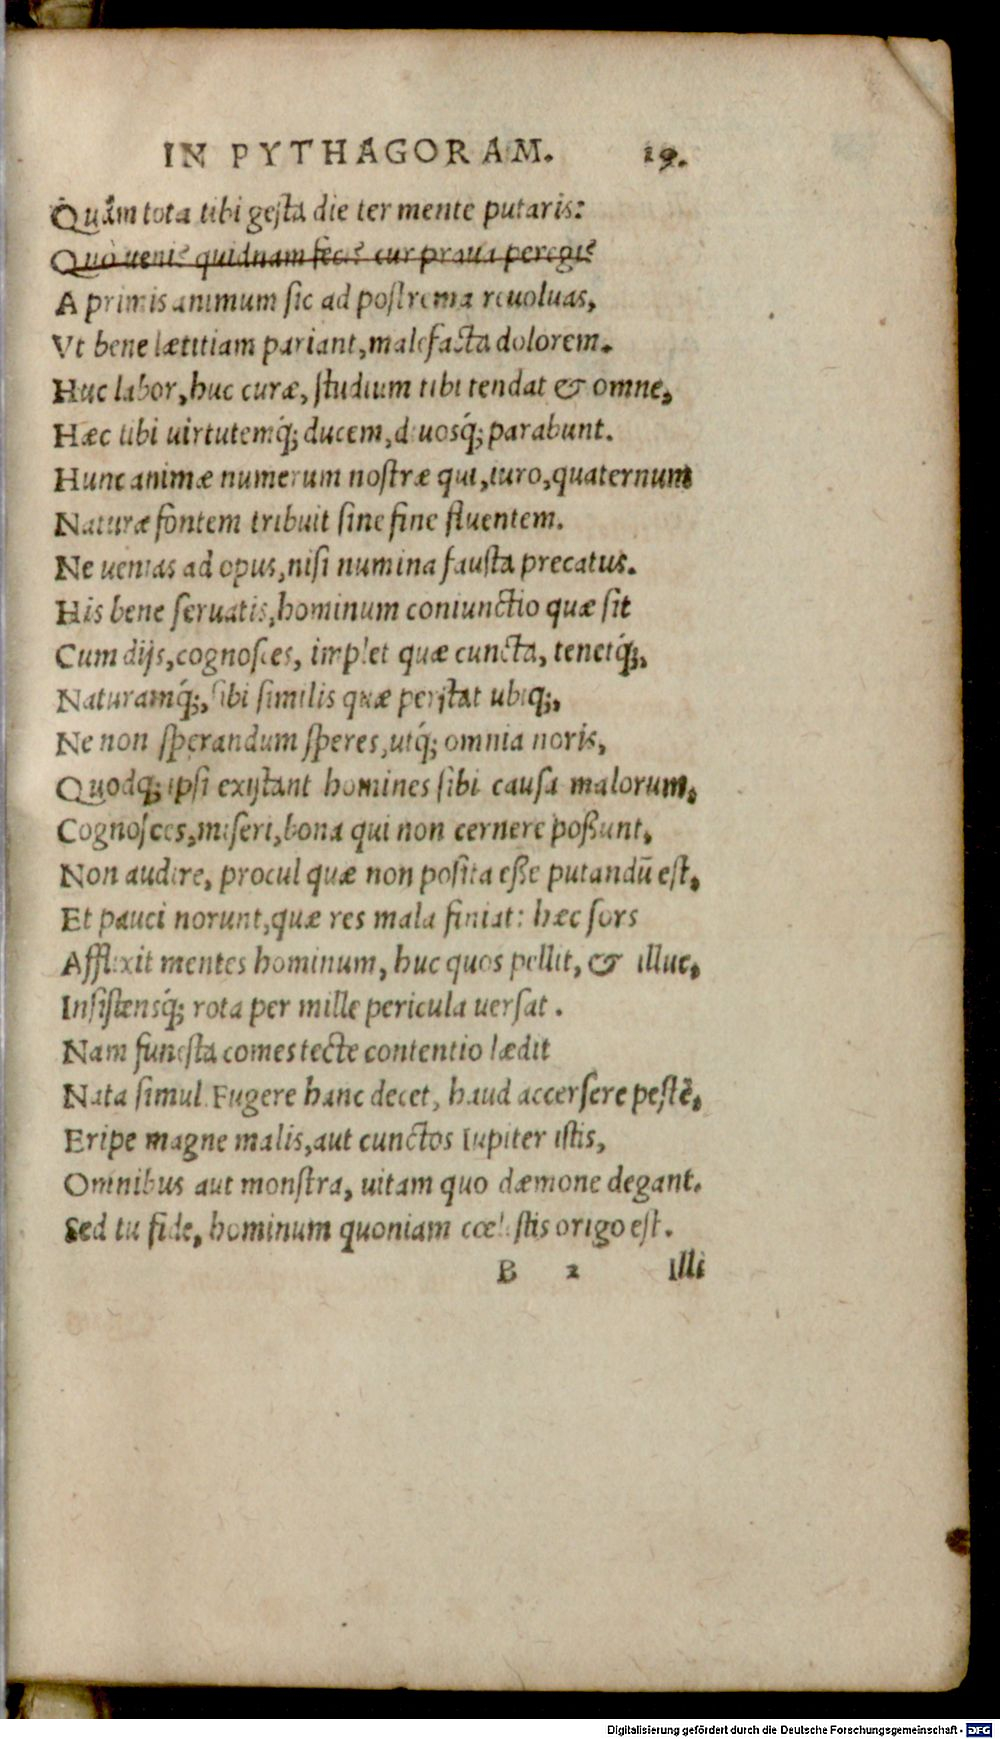 IN PYTHAGORAM. 19.
Quàm tota tibi gesta die ter mente putaris:
Quò uenis quidnam fecis cur praua peregis
A primis animum sic ad postrema reuoluas,
Vt bene lætitiam pariant, malefacta dolorem.
Huc labor, huc curæ, studium tibi tendat & omne,
Hæc tibi uirtutemq́; ducem, diuosq́; parabunt.
Hunc animæ numerum nostræ qui, iuro, quaternum
Naturæ fontem tribuit sine fine fluentem.
Ne uenias ad opus, nisi numina fausta precatus.
His bene seruatis, hominum coniunctio quæ sit
Cum dijs, cognosces, implet quæ cuncta, tenetq́;,
Naturamq́;, sibi similis quæ perstat ubiq;,
Ne non sperandum speres, utq́; omnia noris,
Quodq; ipsi existant homines sibi causa malorum,
Cognosces, miseri, bona qui non cernere poßunt,
Non audire, procul quæ non posita eße putandū est,
Et pauci norunt, quæ res mala finiat: hæc sors
Afflixit mentes hominum, huc quos pellit, & illuc,
Insistensq́; rota per mille pericula uersat.
Nam funesta comes tecte contentio lædit
Nata simul. Fugere hanc decet, haud accersere pestē,
Eripe magne malis, aut cunctos Iupiter istis,
Omnibus aut monstra, uitam quo dæmone degant.
Sed tu fide, hominum quoniam cœlestis origo est.
B 2 Illi
Digitalisierung gefördert durch die Deutsche Forschungsgemeinschaft - DFG